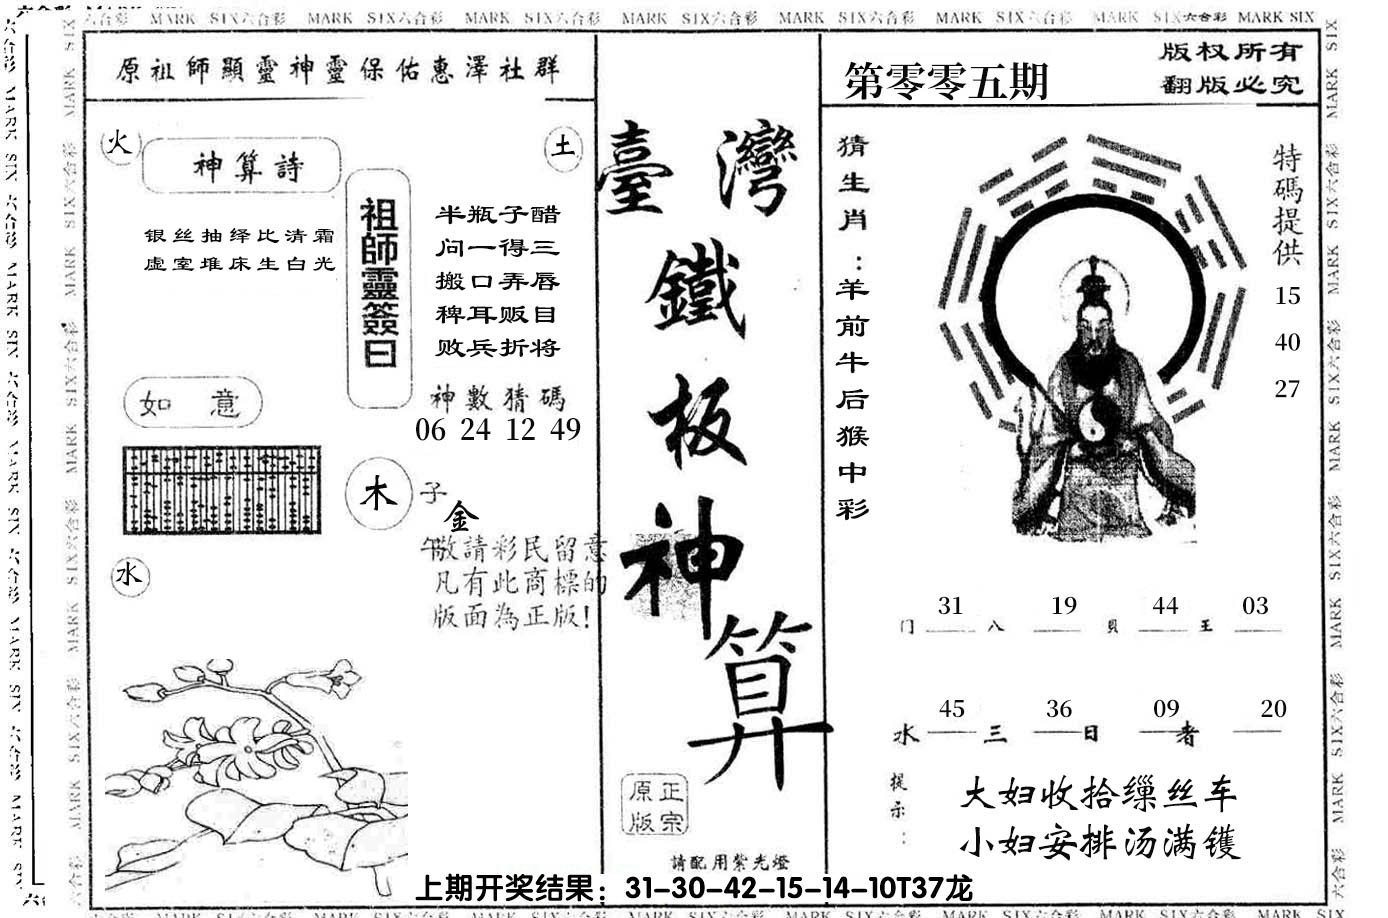 MARK SIX六合彩 MARK SIX六合彩 MARK SIX六合彩 MARK SIX六合彩 MARK SIX六合彩 MARK SIX六合彩 MARK SIX六合彩 MARK SIX
原祖師顯靈神靈保佑惠澤社群
火
神算詩
土
银丝抽绎比清霜
虚室堆床生白光
祖師靈簽曰
半瓶子醋
问一得三
搬口弄唇
稗耳贩目
败兵折将
神數猜碼
06 24 12 49
如意
木
子
金
午
敬請彩民留意
凡有此商標的
版面為正版!
水
臺灣
鐵
板
神
算
原正
版宗
請配用紫光燈
第零零五期
版权所有
翻版必究
猜生肖：羊前牛后猴中彩
特碼提供
15
40
27
31 19 44 03
门 八 貝 王
45 36 09 20
水 三 日 者
提示：
大妇收拾缫丝车
小妇安排汤满镬
上期开奖结果：31-30-42-15-14-10T37龙